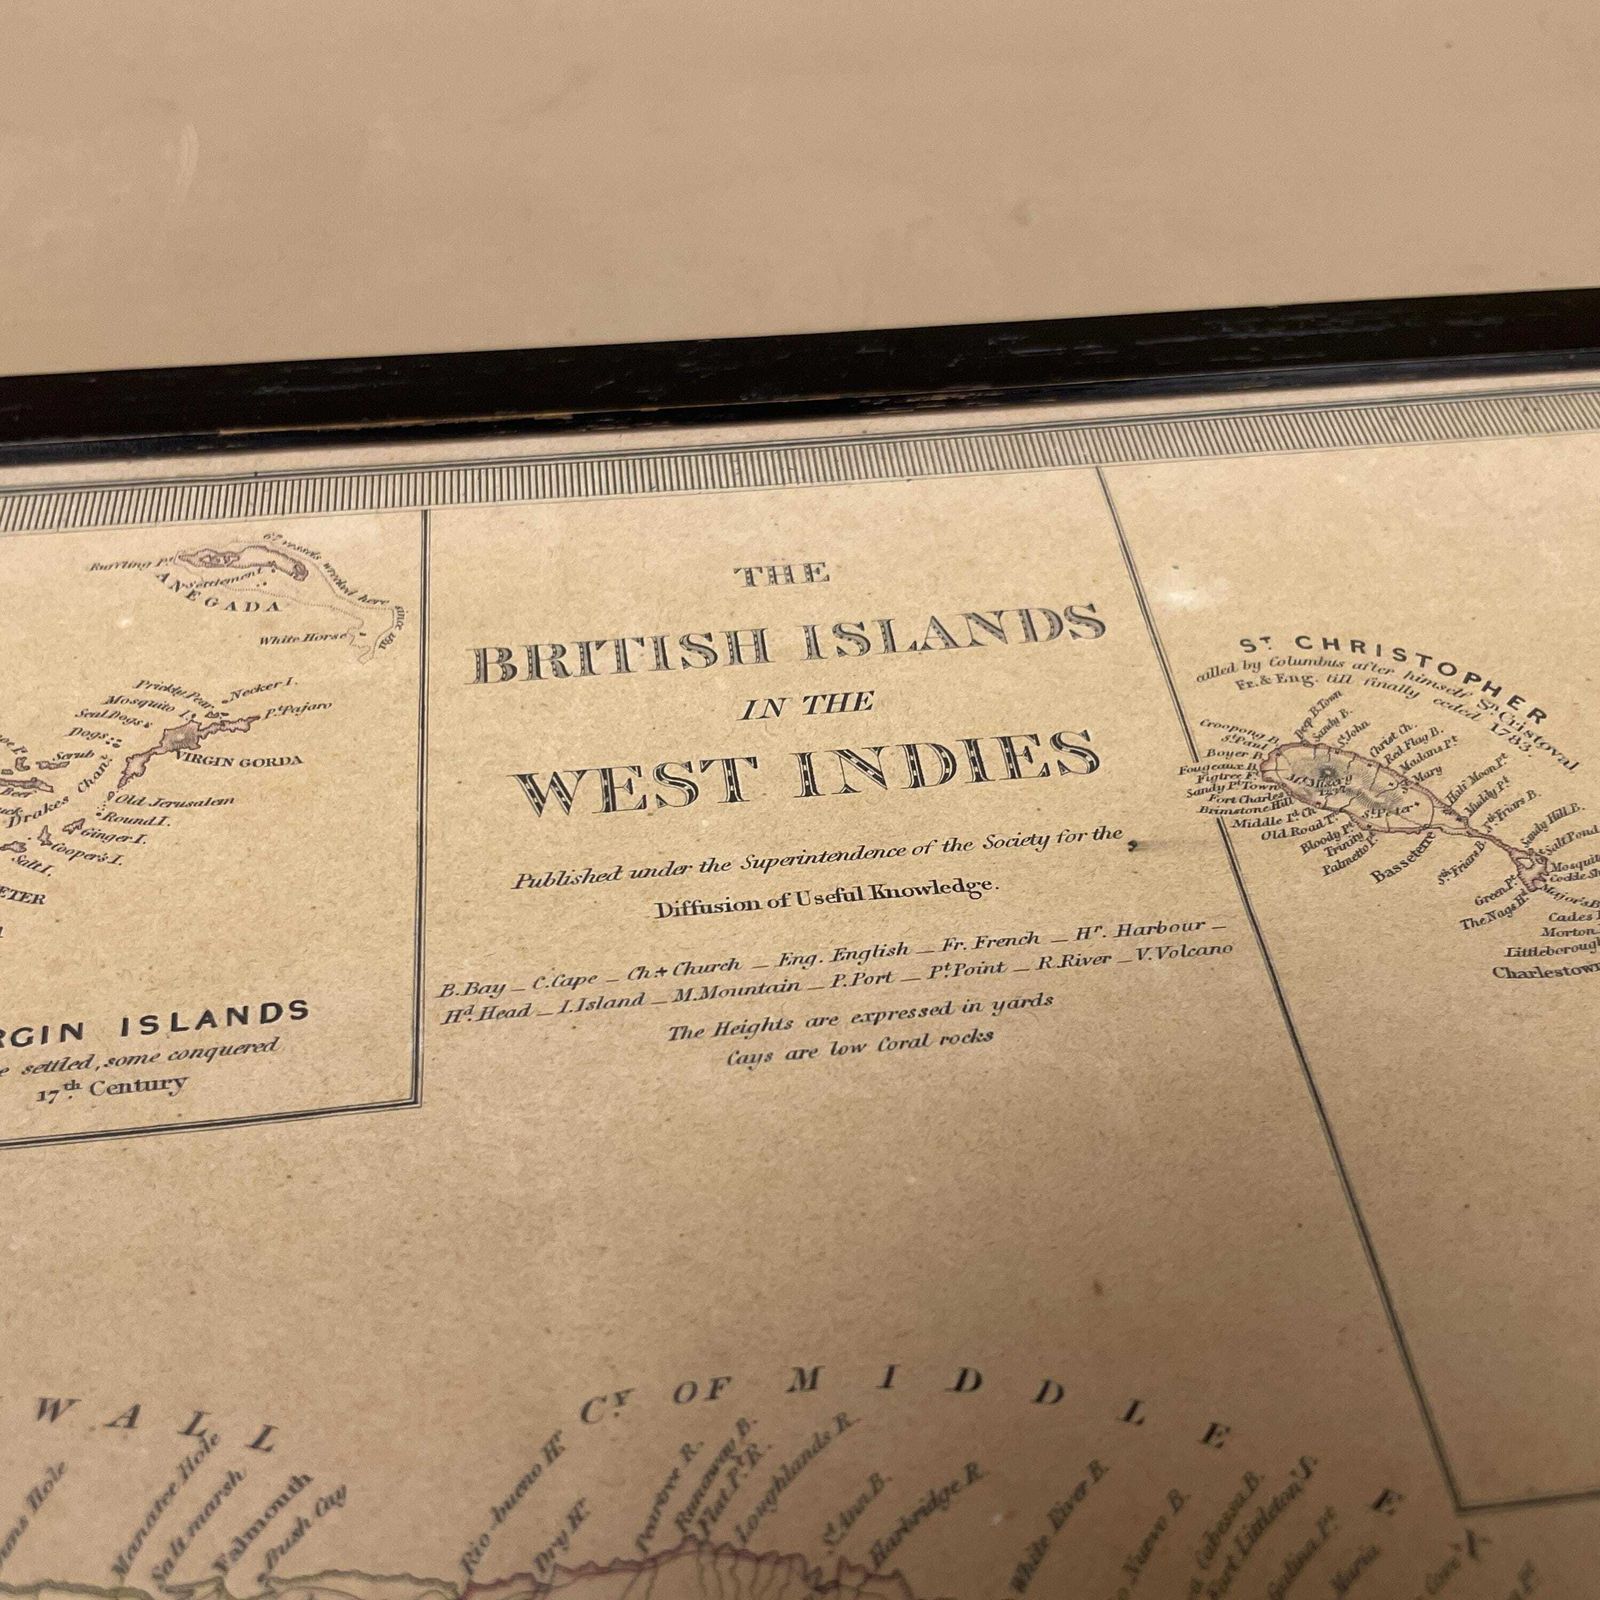 THE
BRITISH ISLANDS
IN THE
WEST INDIES
Published under the Superintendence of the Society for the
Diffusion of Useful Knowledge.
B.Bay _ C.Cape _ Ch.+ Church _ Eng. English _ Fr. French _ Hr. Harbour _
Hd. Head _ I.Island _ M.Mountain _ P.Port _ Pt. Point _ R.River _ V.Volcano
The Heights are expressed in yards
Cays are low Coral rocks
ANEGADA
Settlement
White Horse
Prickly Pear
Necker I.
Mosquito I.
Pt. Pajaro
Seal Dogs
Dogs
Scrub
VIRGIN GORDA
Beef
Drakes Chanl.
Old Jerusalem
Round I.
Ginger I.
Cooper's I.
Salt I.
ETER
RGIN ISLANDS
settled, some conquered
17th. Century
ST. CHRISTOPHER
called by Columbus after himself Sn. Cristoval
Fr. & Eng. till finally ceded 1783.
Deep B. Town
Sandy B.
St. John
Christ Ch.
Red Flag B.
Madans Pt.
St. Mary
Half Moon Pt.
Muddy Pt.
Nth. Friars B.
Sandy Hill B.
Salt Pond
Mosquit
Cockle Sh
Major's B
St. Paul
Figtree Ft.
Sandy Pt. Town
Fort Charles
Brimstone Hill
Middle Id. Ch.
Old Road T.
Bloody Pt.
Trinity
Palmetto P.
St. Peter
Basseterre
Sth. Friars B.
Green Pt.
The Nags Hd.
Cades
Morton
Littleborough
Charlestown
WALL
CY. OF MIDDLE
Manatee Hole
Salt marsh
Falmouth
Bush Cay
Rio-bueno Hr.
Dry Hr.
Peartree R.
Runaway B.
Flat Pt. R.
Loughlands R.
St. Anns B.
Harbridge R.
White River B.
Nuevo B.
Cabessa B.
Fort Littleton
Galina Pt.
Maria